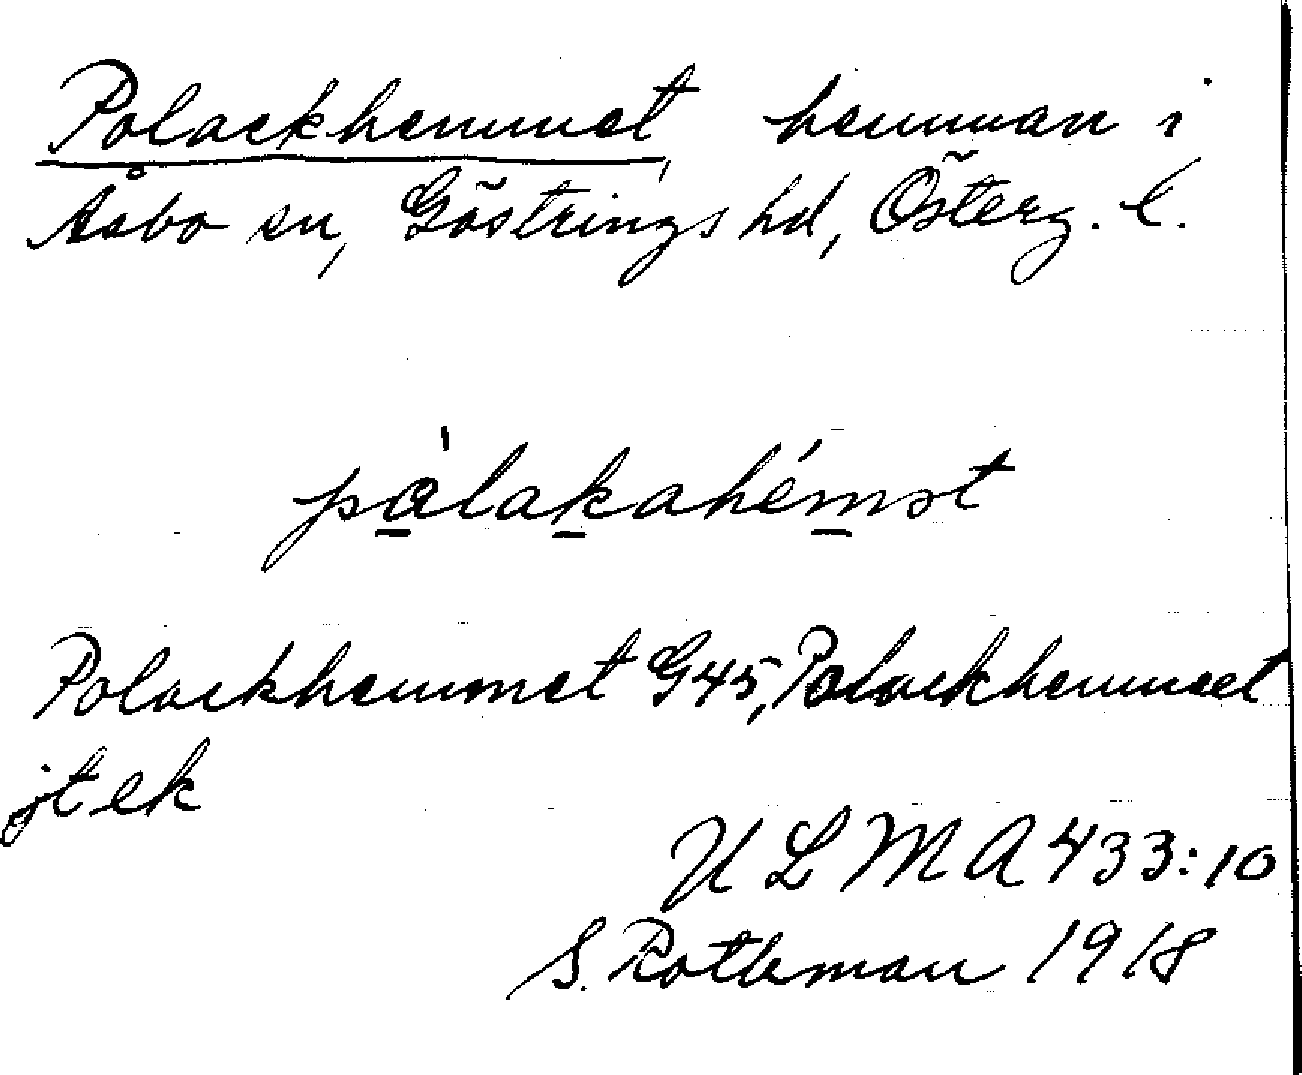 Polackhemmet, hemman i
Åsbo sn, Göstrings hd, Österg. l.
pàlakahémət
Polackhemmet G45, Polackhemmet
jt ek
ULMA 433:10
S. Rothman 1918